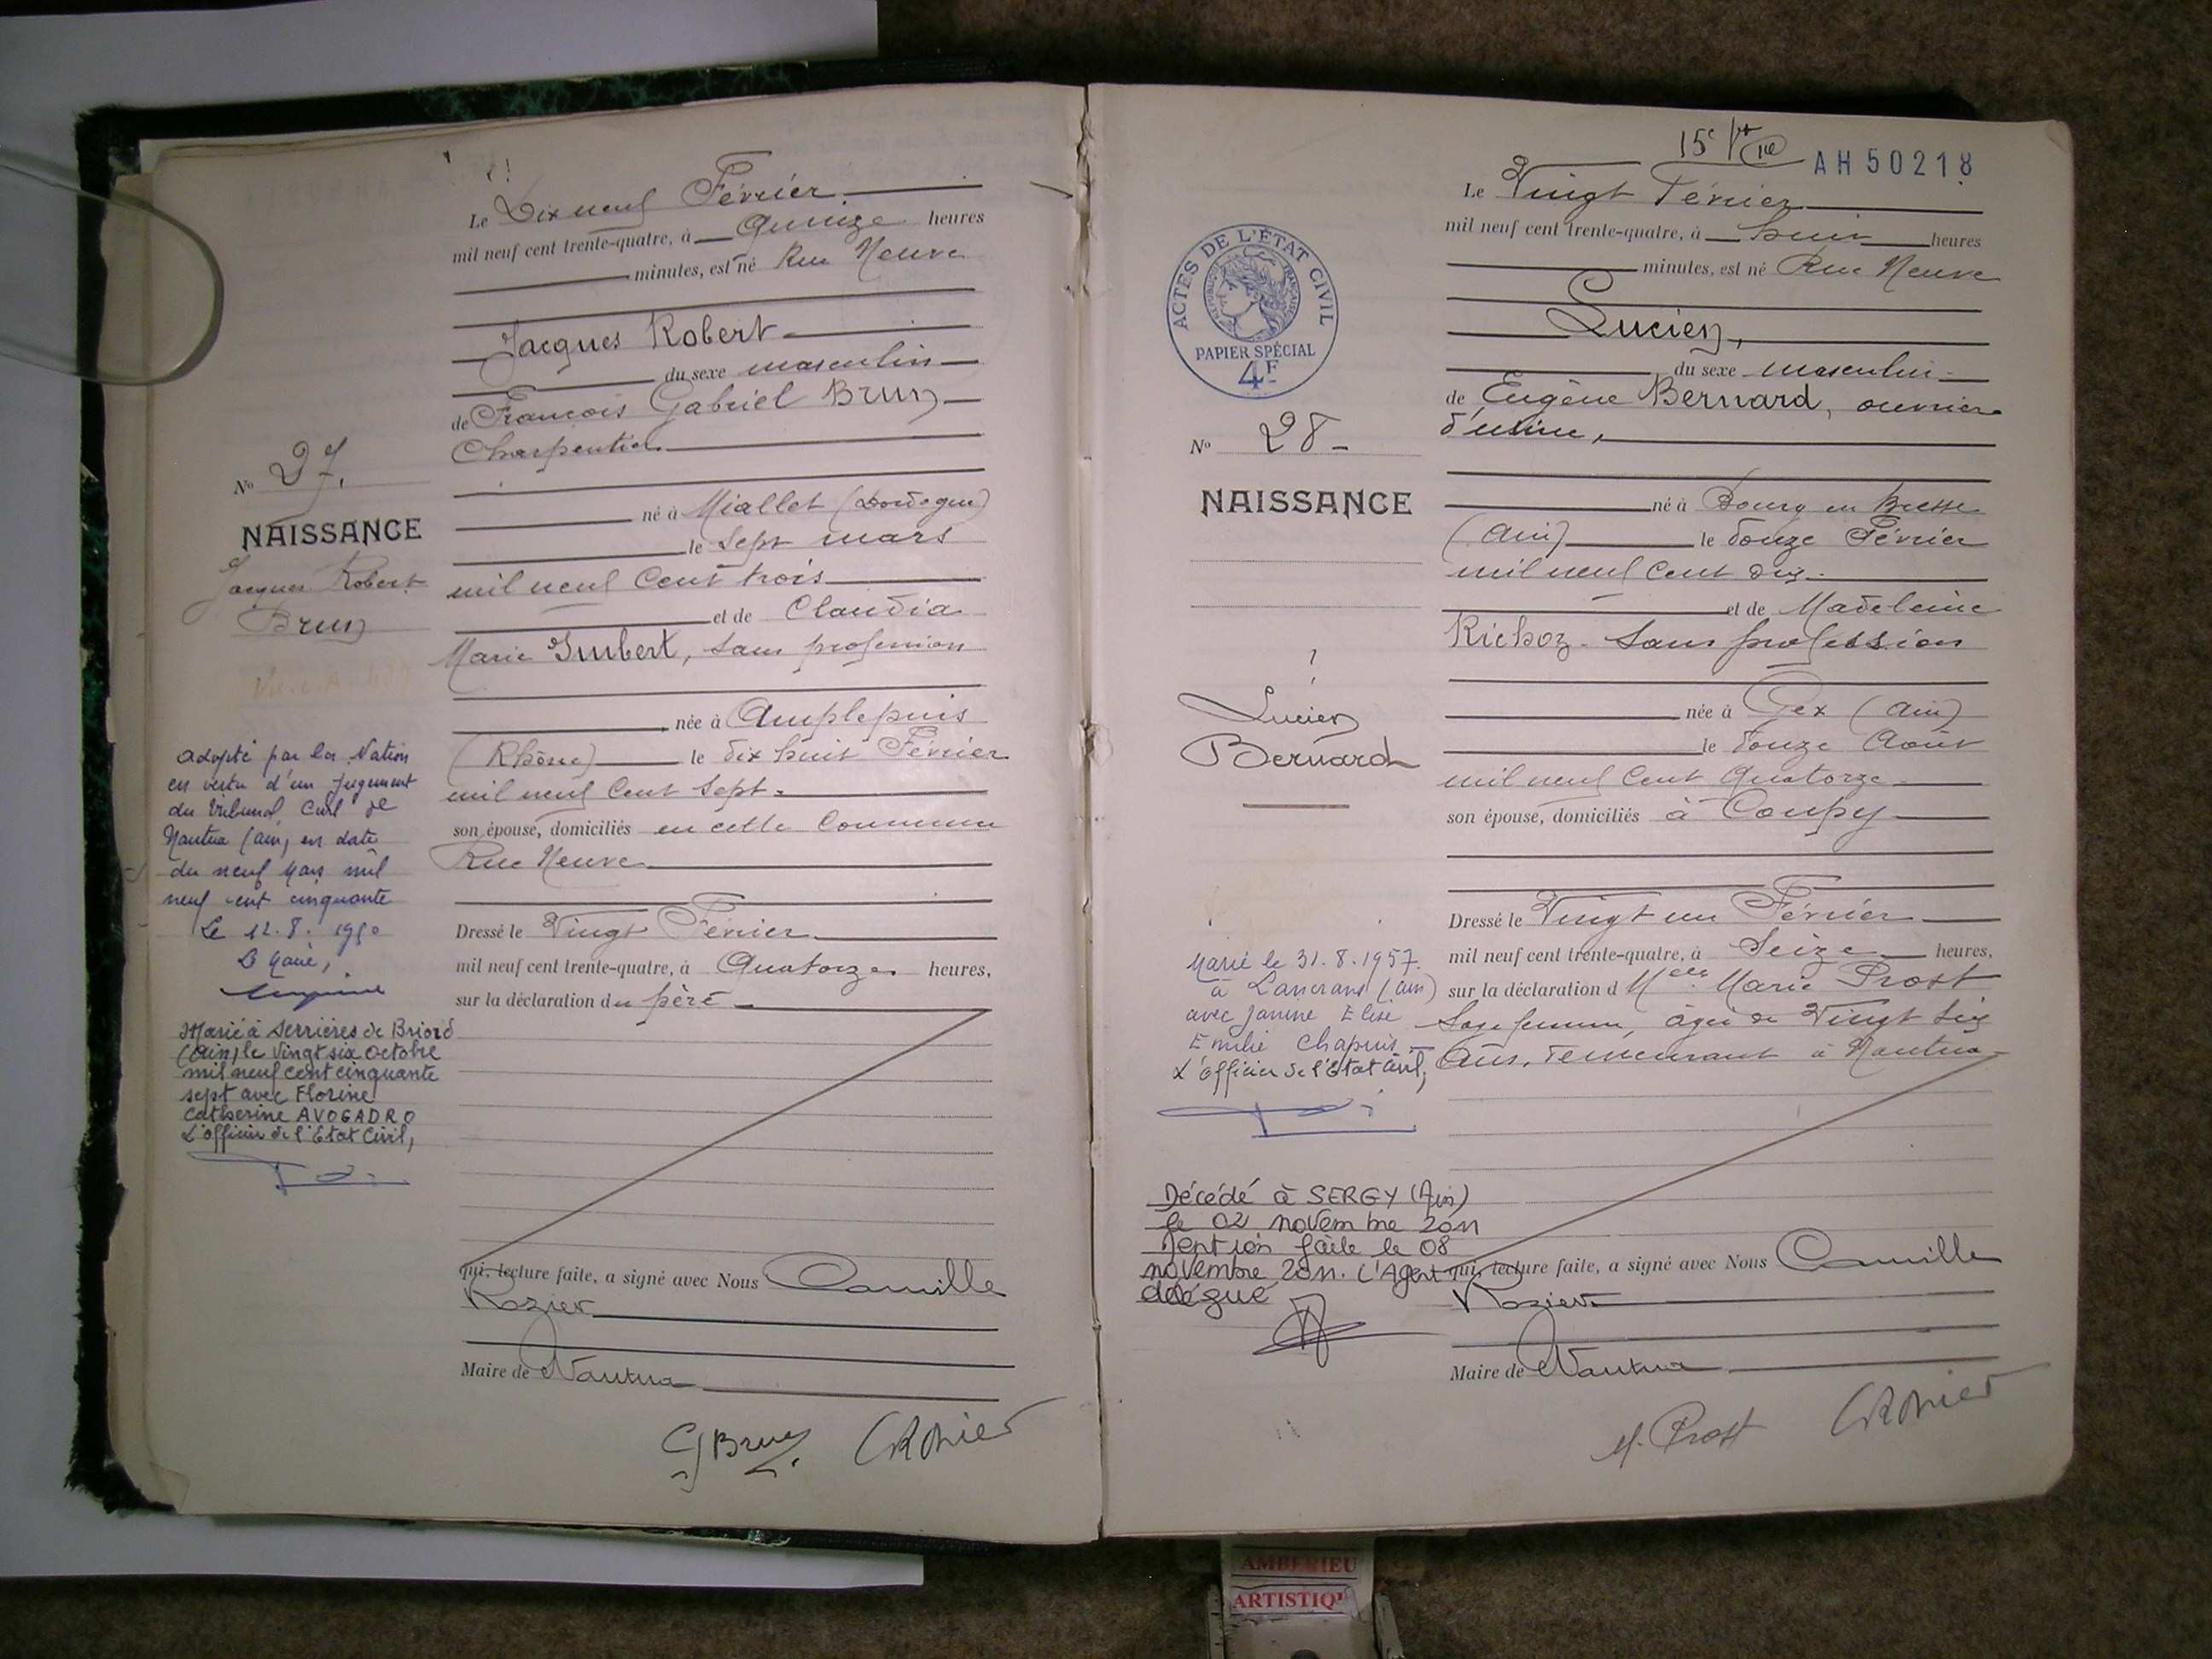 Le Dix neuf Février
mil neuf cent trente-quatre, à Quinze heures
minutes, est né Rue Neuve
Jacques Robert
du sexe masculin
de François Gabriel Brun
Charpentier
né à Miallet (Dordogne)
le sept mars
mil neuf cent trois
et de Claudia
Marie Guibert, sans profession
née à Amplepuis
(Rhône) le dix huit Février
mil neuf cent sept.
son épouse, domiciliés en cette Commune
Rue Neuve
Dressé le Vingt Février
mil neuf cent trente-quatre, à Quatorze heures,
sur la déclaration du père
qui, lecture faite, a signé avec Nous Camille
Rozier
Maire de Nantua
GBrun CRozier
No 27.
NAISSANCE
Jacques Robert
Brun
adopté par la Nation
en vertu d'un jugement
du Tribunal Civil de
Nantua (Ain) en date
du neuf Mars mil
neuf cent cinquante
Le 12.8.1950
Le Maire,
Marié à Serrières de Briord
(Ain) le vingt six octobre
mil neuf cent cinquante
sept avec Florine
Catherine AVOGADRO
L'officier de l'Etat Civil,
15e
AH50218
Le Vingt Février
mil neuf cent trente-quatre, à huit heures
minutes, est né Rue Neuve
Lucien,
du sexe masculin
de Eugène Bernard, ouvrier
d'usine,
né à Bourg en Bresse
(Ain) le douze Février
mil neuf cent dix.
et de Madeleine
Richoz. Sans profession
née à Gex (Ain)
le douze Août
mil neuf cent Quatorze
son épouse, domiciliés à Coupy
Dressé le Vingt un Février
mil neuf cent trente-quatre, à Seize heures,
sur la déclaration d Melle Marie Prost
Sage femme, âgée de Vingt Six
Ans, demeurant à Nantua
qui, lecture faite, a signé avec Nous Camille
Rozier
Maire de Nantua
M. Prost CRozier
ACTES DE L'ÉTAT CIVIL
RÉPUBLIQUE FRANÇAISE
PAPIER SPÉCIAL
4F
No 28
NAISSANCE
Lucien
Bernard
Marié le 31.8.1957.
à Lancrans (Ain)
avec Janine Elise
Emilie Chapuis
L'officier de l'Etat Civil,
Décédé à SERGY (Ain)
le 02 novembre 2011
Mention faite le 08
novembre 2011. L'Agent
délégué
AMBERIEU
ARTISTIQ